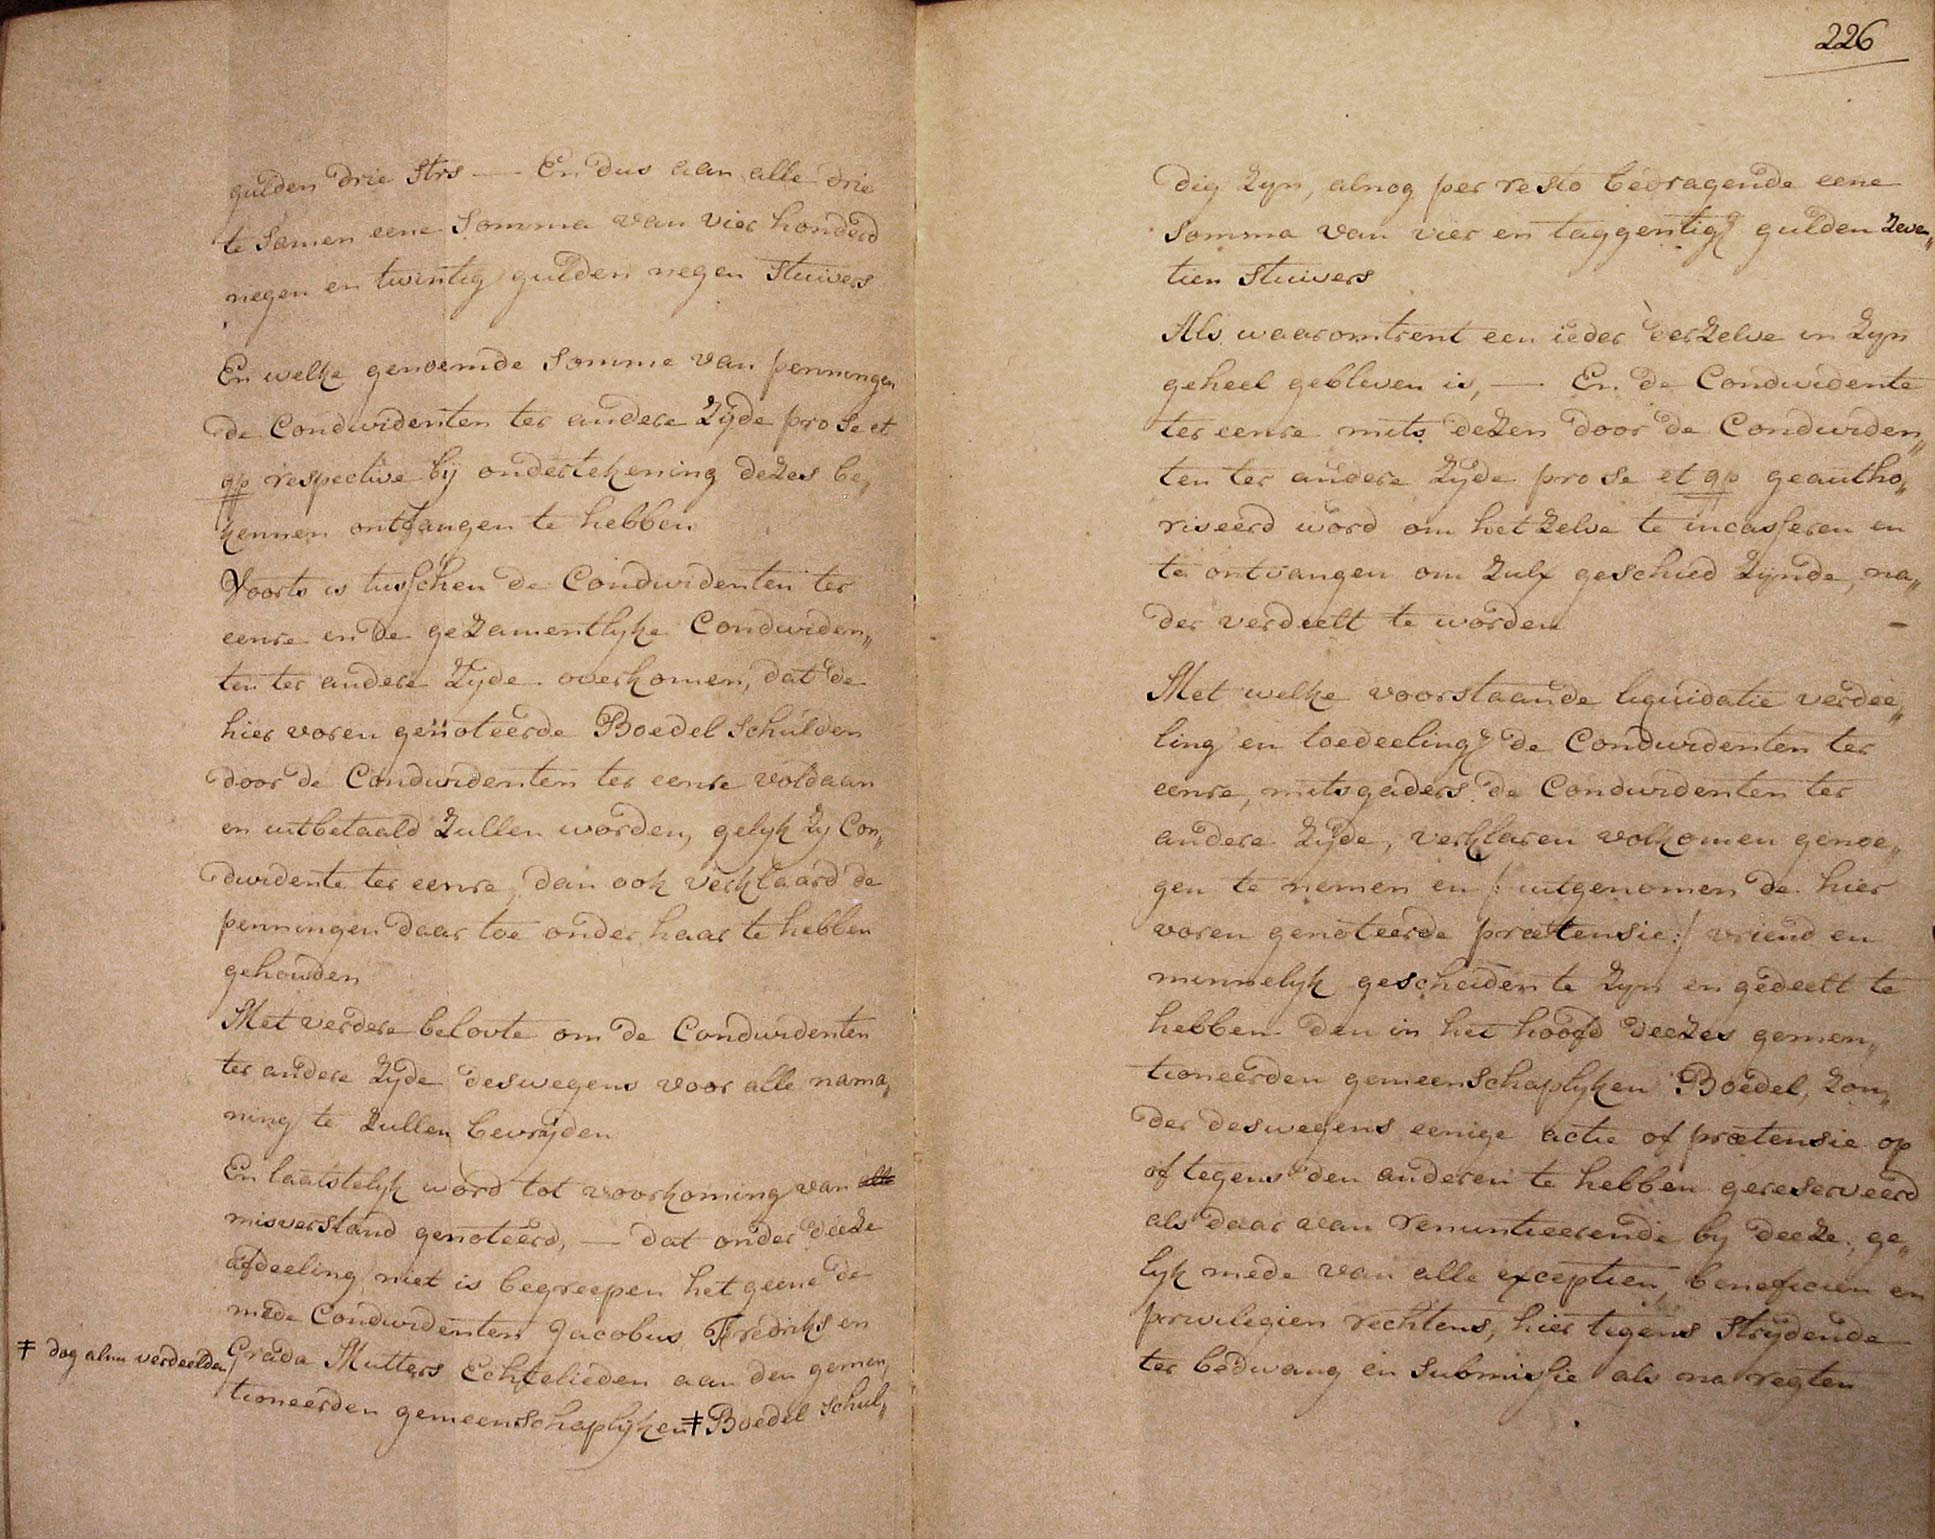 gulden drie strs — En dus aan alle drie
te samen eene somma van vier honderd
negen en twintig gulden negen stuivers
En welke genoemde somme van penningen
de Condividenten ter andere Zijde pro se et
qp respective bij ondertekening dezes be„
kennen ontfangen te hebben
Voorts is tusschen de Condividenten ter
eenre en de gezamentlyke Condividen„
ten ter andere Zijde overkomen, dat de
hier voren genoteerde Boedel schulden
door de Condividenten ter eenre voldaan
en uitbetaald zullen worden, gelyk zy Con„
dividente ter eenre, dan ook verklaard de
penningen daar toe onder haar te hebben
gehouden
Met verdere belovte om de Condividenten
ter andere Zyde deswegens voor alle nama„
ning te zullen bevrijden
En laatstelyk word tot voorkoming van alle
misverstand genoteerd, — dat onder deeze
afdeeling niet is begreepen het geene de
mede Condividenten Jacobus Fredriks en
Grada Mutters Echtelieden aan den gemen„
tioneerden gemeenschaplijken ‡ Boedel schul„
‡ dog alnu verdeelden
226
dig zyn, alnog per resto bedragende eene
somma van vier en taggentig gulden zeven„
tien stuivers
Als waaromtrent een ieder derzelve in zyn
geheel gebleven is, — En de Condividente
ter eenre mits dezen door de Condividen„
ten ter andere Zyde pro se et qp geautho„
riseerd word om het zelve te incasseren en
te ontvangen om zulx geschied zijnde, na„
der verdeelt te worden
Met welke voorstaande liquidatie verdee„
ling en toedeeling de Condividenten ter
eenre, mitsgaders de Condividenten ter
andere Zijde, verklaren volkomen genoe„
gen te nemen en /: uitgenomen de hier
voren genoteerde prætensie :/ vriend en
minnelyk gescheiden te zyn en gedeelt te
hebben den in het hoofd deezes gemen„
tioneerden gemeenschaplyken Boedel, zon„
der deswegens eenige actie of prætensie op
of tegens den anderen te hebben gereserveerd
als daar van renuntieerende by deeze, ge„
lyk mede van alle exceptien, beneficien en
privilegien rechtens, hier tegens strijdende
ter bedwang en submissie als na regten